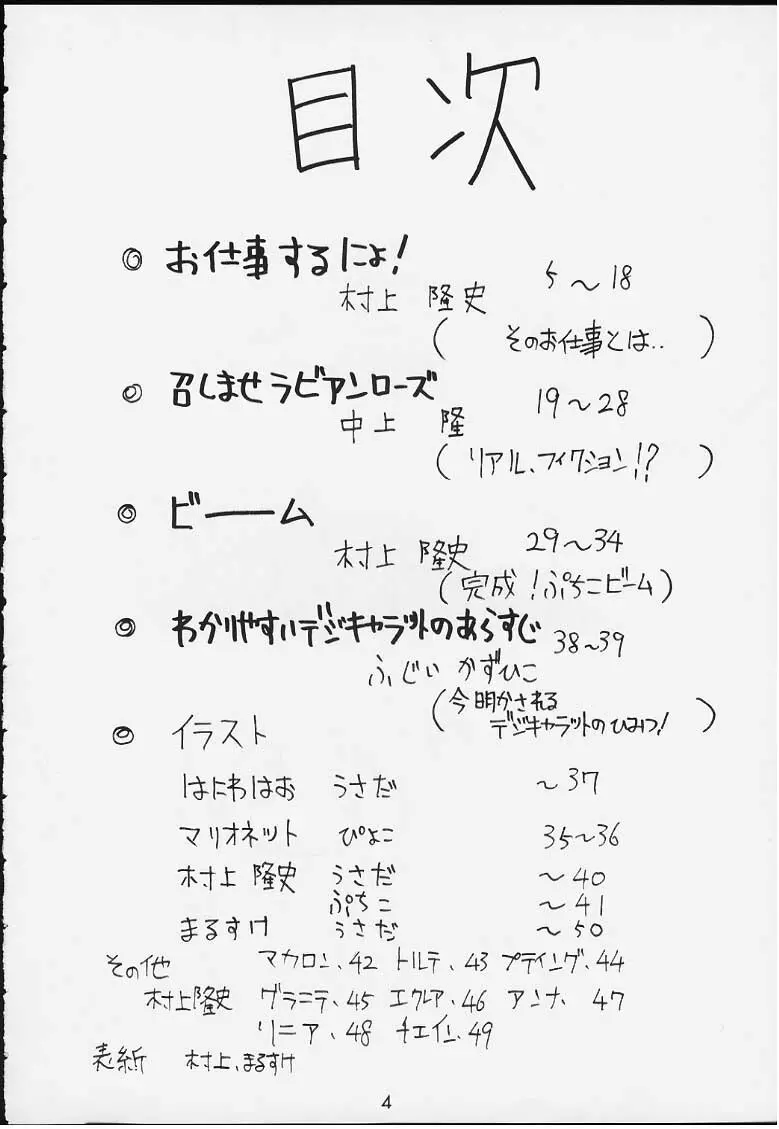 目次
◎ お仕事するにょ!
村上 隆史 5〜18
(そのお仕事とは..)
◎ 召しませラビアンローズ
中上 隆 19〜28
(リアル、フィクション!?)
◎ ビーーム
村上 隆史 29〜34
(完成!ぷちこビーム)
◎ わかりやすいデジキャラットのあらすじ 38〜39
ふじい かずひこ
(今明かされる
デジキャラットのひみつ!)
◎ イラスト
はにわはお うさだ 〜37
マリオネット ぴよこ 35〜36
村上 隆史 うさだ 〜40
ぷちこ 〜41
まるすけ うさだ 〜50
その他 マカロン、42 トルテ、43 プティング、44
村上隆史 グラニテ、45 エクレア、46 アンナ、47
リニア、48 チェイン、49
表紙 村上、まるすけ
4